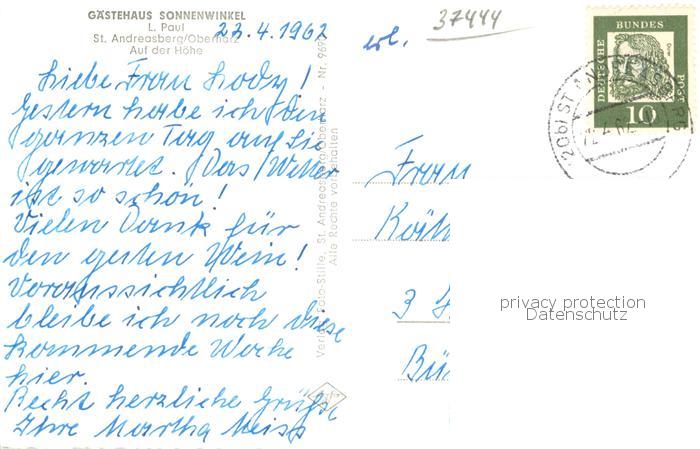 GÄSTEHAUS SONNENWINKEL
L. Paul
St. Andreasberg/Oberharz
Auf der Höhe
23.4.1962
Liebe Frau Lody!
Gestern habe ich den
ganzen Tag auf Sie
gewartet. Das Wetter
ist so schön!
Vielen Dank für
den guten Wein!
Voraussichtlich
bleibe ich noch diese
kommende Woche
hier.
Recht herzliche Grüße
Ihre Martha Meiss
Verlag Foto-Stille, St. Andreasberg/Oberharz - Nr. 969
Alle Rechte vorbehalten
erl.
37444
DEUTSCHE BUNDES POST
10
Frau
Käth
3
Bü
privacy protection
Datenschutz